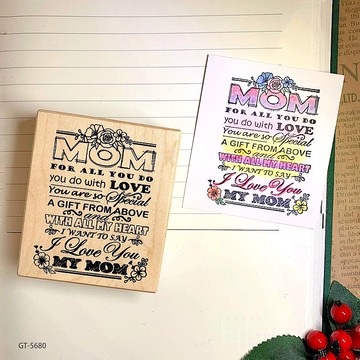 MOM
FOR ALL YOU DO
you do with LOVE
You are so Special
A GIFT FROM ABOVE
and
WITH ALL MY HEART
I WANT TO SAY
I Love You
MY MOM
MOM
FOR ALL YOU DO
you do with LOVE
You are so Special
A GIFT FROM ABOVE
and
WITH ALL MY HEART
I WANT TO SAY
I Love You
MY MOM
GT-5680